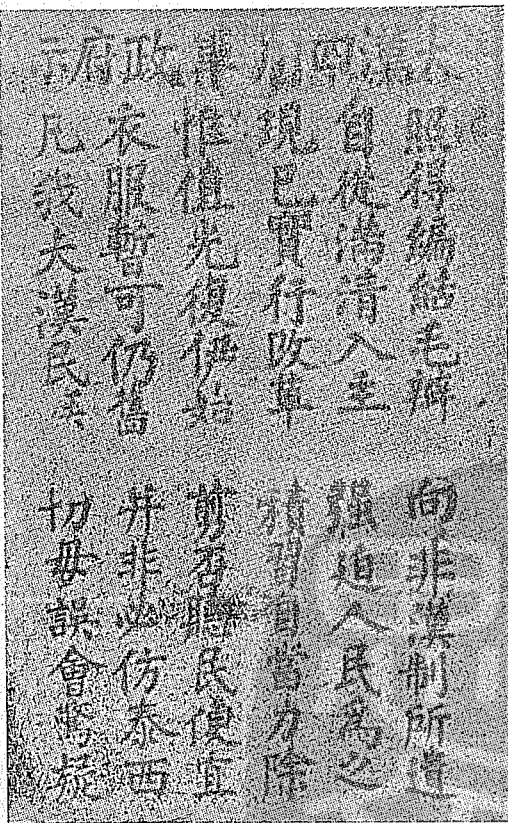 軍政府示
照得編結毛辮　向非漢制所遵
自從滿清入主　強迫人民為之
現已實行改革　積習自當力除
惟值光復伊始　剪否聽民便宜
衣服暫可仍舊　并非必仿泰西
凡我大漢民　切毋誤會驚疑